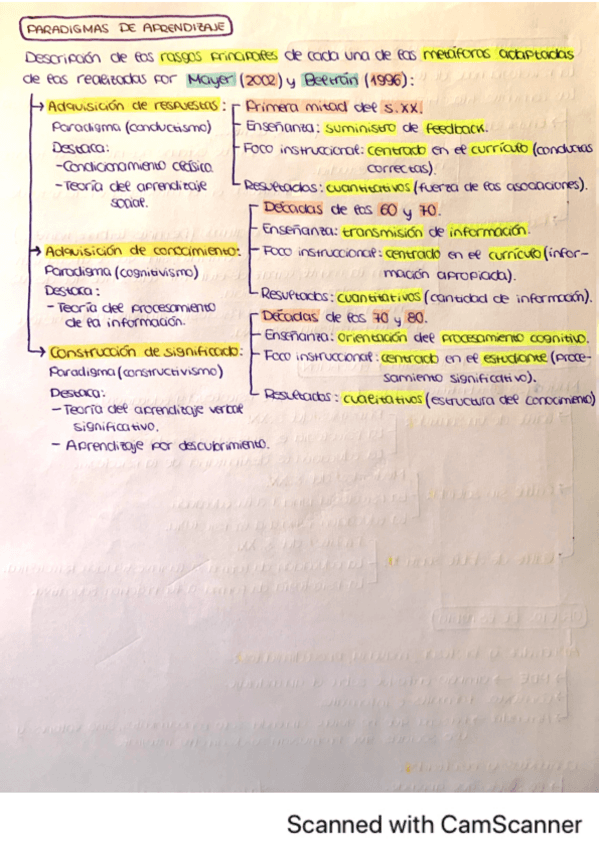 PARADIGMAS DE APRENDIZAJE
Descripción de los rasgos principales de cada una de las metáforas adaptadas
de las realizadas por Mayer (2002) y Beltrán (1996):
Adquisición de respuestas:
Paradigma (conductismo)
Destaca:
- Condicionamiento clásico.
- Teoría del aprendizaje
social.
Primera mitad del s.XX.
Enseñanza: suministro de feedback.
Foco instruccional: centrado en el currículo (conductas
correctas).
Resultados: cuantitativos (fuerza de las asociaciones).
Adquisición de conocimiento:
Paradigma (cognitivismo)
Destaca:
- Teoría del procesamiento
de la información.
Décadas de los 60 y 70.
Enseñanza: transmisión de información.
Foco instruccional: centrado en el currículo (infor-
mación apropiada).
Resultados: cuantitativos (cantidad de información).
Construcción de significado:
Paradigma (constructivismo)
Destaca:
- Teoría del aprendizaje verbal
significativo.
- Aprendizaje por descubrimiento.
Décadas de los 70 y 80.
Enseñanza: orientación del procesamiento cognitivo.
Foco instruccional: centrado en el estudiante (proce-
samiento significativo).
Resultados: cualitativos (estructura del conocimiento)
Scanned with CamScanner